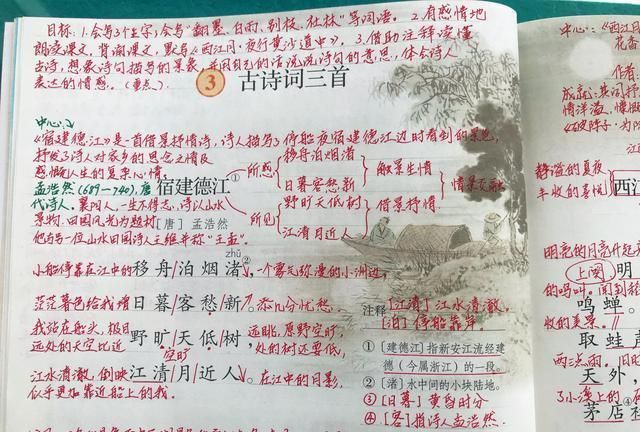 目标：1.会写3个生字，会写“翻墨、白雨、别枝、社林”等词语。2.有感情地
朗读课文，背诵课文，默写《西江月·夜行黄沙道中》。3.借助注释读懂
古诗，想象诗句描写的景象，并用自己的话说说诗句的意思，体会诗人
表达的情感。（重点）
3 古诗词三首
中心：
《宿建德江》是一首借景抒情诗，诗人描写了停船夜宿建德江边时看到的景色，
抒发了诗人对家乡的思念之情及
感慨人生的复杂心情。
所感
移舟泊烟渚
日暮客愁新
触景生情
所见
野旷天低树
江清月近人
借景抒情
情景交融
孟浩然（689-740），唐
代诗人，襄阳人，一生不得志，诗以山水
景物、田园风光为题材
他与另一位山水田园诗人王维并称“王孟”。
宿建德江①
［唐］孟浩然
小船停靠在江中的
zhǔ
移舟/泊烟渚②，
一个雾气弥漫的小洲边，
茫茫暮色给我增
日暮/客愁/新。
添几分忧愁。
我站在船头，极目
远处的天空比近
野旷/天低/树，
空旷
远眺，原野空旷，
处的树还要低，
江水清澈，倒映
江清/月近/人。
在江中的月影，
似乎更加靠近船上的我。
注释
［江清］江水清澈。
［泊］停船靠岸。
①［建德江］指新安江流经建
德（今属浙江）的一段。
②［渚］水中间的小块陆地。
③［日暮］黄昏时分
④［客］指诗人孟浩然。
中心：《西江月
花香
作者
成就：
情洋溢，慷慨
《破阵子·为陈
静谧的夏夜
丰收的喜悦
西江
明亮的月亮升起
上阕
明
的鸣叫。
鸣蝉。
收的美景。
取蛙声
两三点雨，旧
天外，
了小溪上的
茅店社